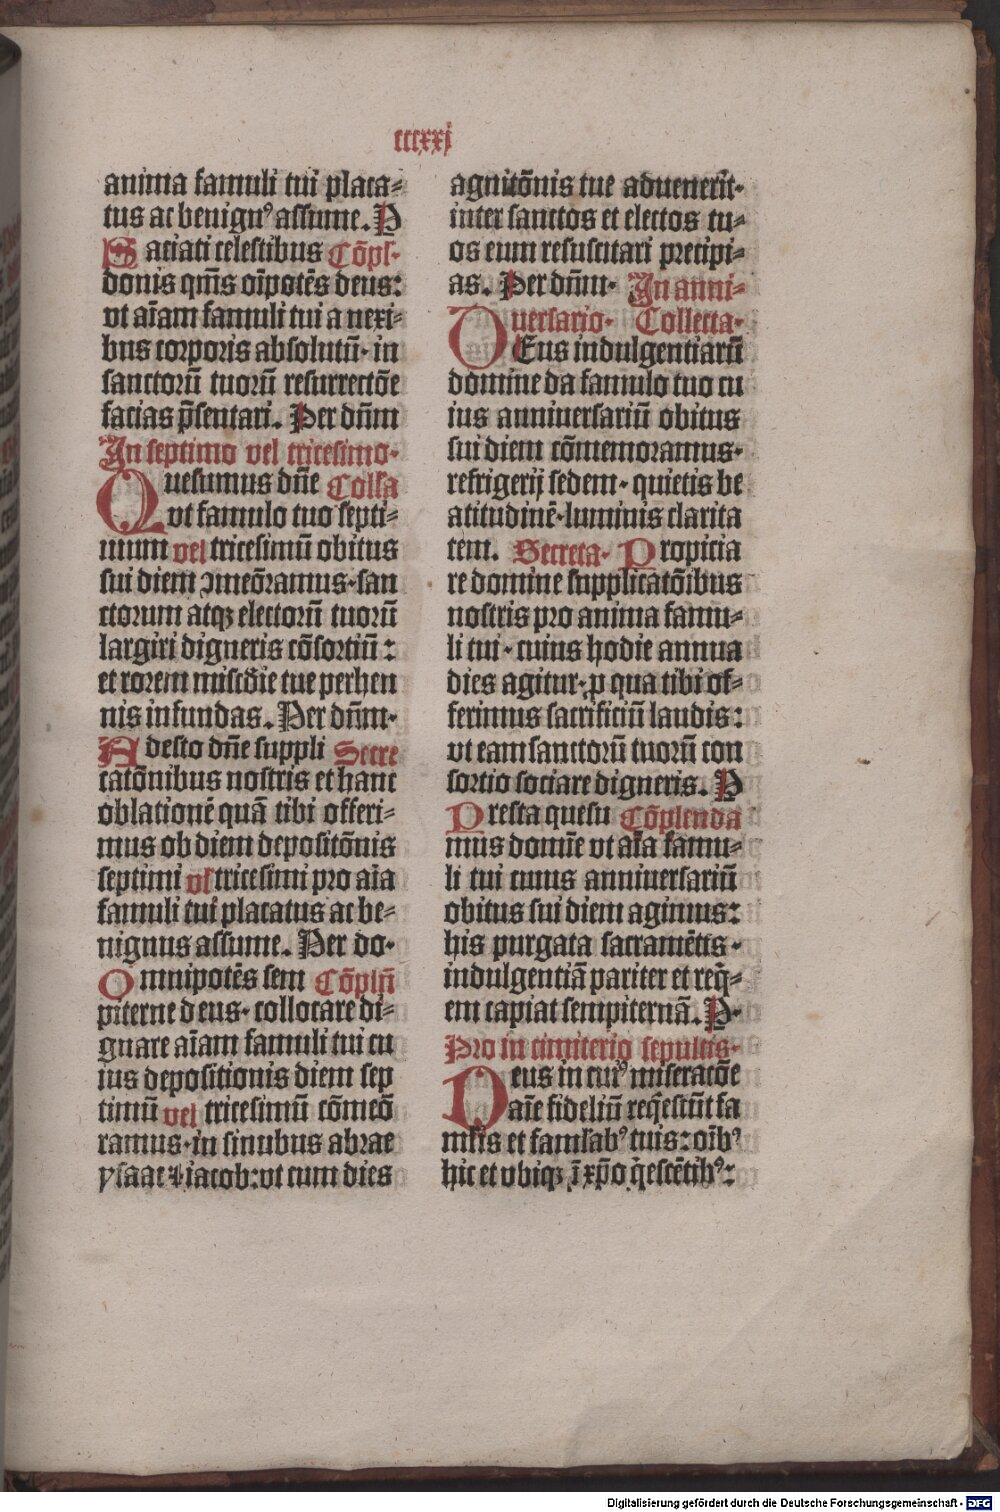 cccxxj
anima famuli tui placa⸗
tus ac benignꝰ assume. P
Saciati celestibus Cōpl⸗
donis qm̄s oīpotēs deus:
vt aīam famuli tui a nexi⸗
bus corporis absolutū· in
sanctorū tuorū resurrectōe
facias p̄sentari. Per dn̄m
In septimo vel tricesimo·
Quesumus dn̄e Collꝭa
vt famulo tuo septi⸗
mum vel tricesimū obitus
sui diem ↄmeōramus·san
ctorum atqꝫ electorū tuorū
largiri digneris cōsortiū:
et rorem misc̄die tue perhen
nis infundas. Per dn̄m·
Adesto dn̄e suppli Secre
catōnibus nostris et hanc
oblationē quā tibi offeri⸗
mus ob diem depositōnis
septimi vꝉ tricesimi pro aīa
famuli tui placatus ac be⸗
nignus assume. Per do·
Omnipotēs sem Cōplēn̄
piterne deus· collocare di⸗
gnare aīam famuli tui cu
ius depositionis diem sep
timū vel tricesimū cōmeō
ramus·in sinubus abrae
ysaac ⁊ iacob:vt cum dies
agnitōnis tue aduenerit·
inter sanctos et electos tu⸗
os eum resuscitari precipi⸗
as. Per dn̄m· In anni⸗
uersario· Collecta·
DEus indulgentiarū
domine da famulo tuo cu
ius anniuersariū obitus
sui diem cōmemoramus·
refrigerij sedem· quietis be
atitudinē·luminis clarita
tem. Secreta· Propicia
re domine supplicatōibus
nostris pro anima famu⸗
li tui·cuius hodie annua
dies agitur·ꝓ qua tibi of⸗
ferimus sacrificiū laudis:
vt eam sanctorū tuorū con
sortio sociare digneris. P
Presta quesu Cōplenda
mus domīe vt aīa famu⸗
li tui cuius anniuersariū
obitus sui diem agimus:
his purgata sacramētis·
indulgentiā pariter et req̄⸗
em capiat sempiternā. P·
Pro in cimiterio sepultis·
Deus in cuiꝰ miseracōe
aīe fideliū req̄escūt fa
mlis et famlabꝰ tuis:oībꝰ
hic et vbiqꝫ ī xp̄o q̄escētibꝰ:
Digitalisierung gefördert durch die Deutsche Forschungsgemeinschaft - DFG